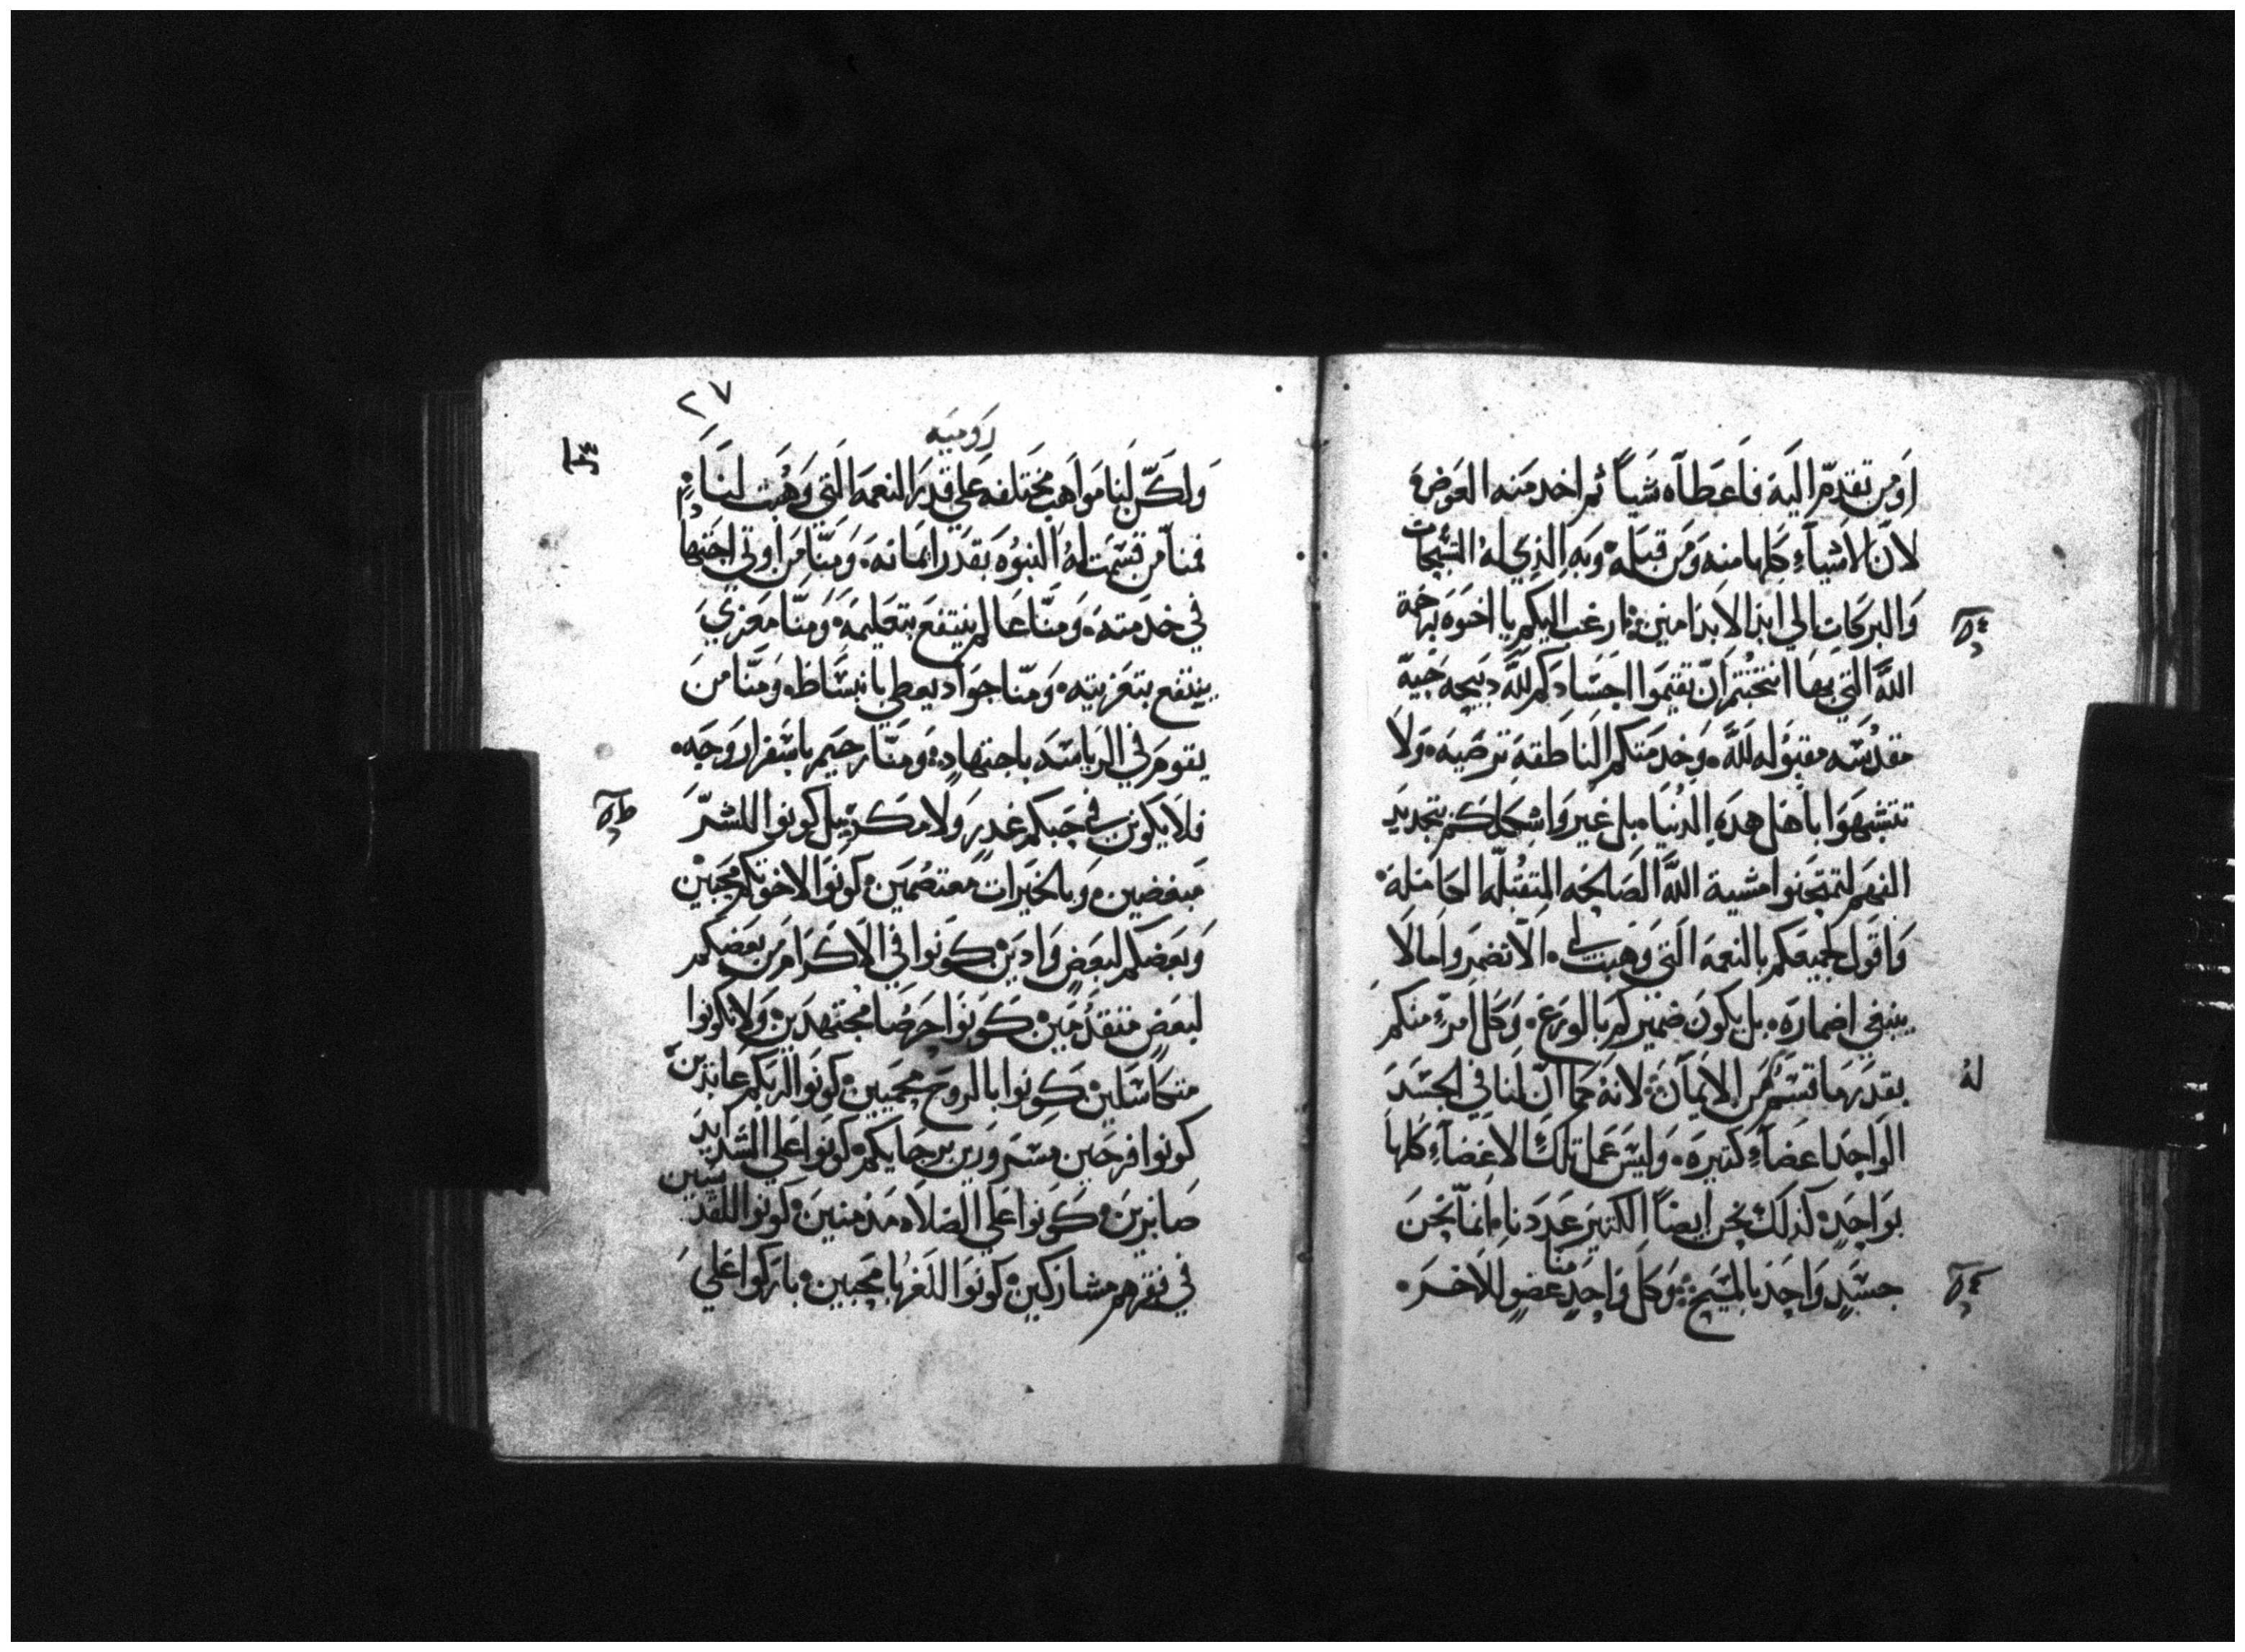 اومن تقدم اليه فاعطاه شياً ثم اخد منه العوض
لان الاشياء كلها منه ومن قبله وبه الذي له التسبيحات
والبركات الي ابد الابد امين ارغب اليكم يا اخوه برحمة
الله التي بها انتخبتم ان تقيموا اجسادكم لله دبيحه حيه
مقدسه مقبوله لله وخدمتكم الناطقه ترضيه ولا
تتشبهوا باهل هده الدنيا بل غيروا شكلكم بتجديد
الفهم لتمتحنوا مشية الله الصالحه المتقبله الكامله
واقول لجميعكم بالنعمه التي وهبت لي الا تضمروا ما لا
ينبغي اضماره بل يكون ضميركم بالورع وكل امرء منكم
بقدر ما قسم له من الايمان لانه كما ان لنا في الجسد
الواحد اعضاء كتيره وليس عمل تلك الاعضاء كلها
بواحد كذلك نحن ايضاً الكتير عددنا انما نحن
جسد واحد بالمسيح وكل واحد منا عضو للاخر
٢٧
روميه
ولكن لنا مواهب مختلفه علي قدر النعمه التي وهبت لنا
فمنا من قسمت له النبوه بقدر ايمانه ومنا من اوتي اجتهاداً
في خدمته ومنا عالم ينتفع بتعليمه ومنا معزي
ينتفع بتعزيته ومنا جواد يعطي بانبساط ومنا من
يقوم في الرياسه باجتهاد ومنا رحيم باسفرار وجه
فلا يكونن في حبكم غدر ولا مكر بل كونوا للشر
مبغضين وبالخيرات معتصمين كونوا لاخوتكم محبين
وبعضكم لبعض وادين كونوا في الاكرام من بعضكم
لبعض متقدمين كونوا حرصا مجتهدين ولا تكونوا
متكاسلين كونوا بالروح محميين كونوا لربكم عابدين
كونوا فرحين مسرورين برجايكم كونوا علي الشدايد
صابرين كونوا علي الصلاه مدمنين كونوا للقديسين
في فقرهم مشاركين كونوا للغربا محبين باركوا علي